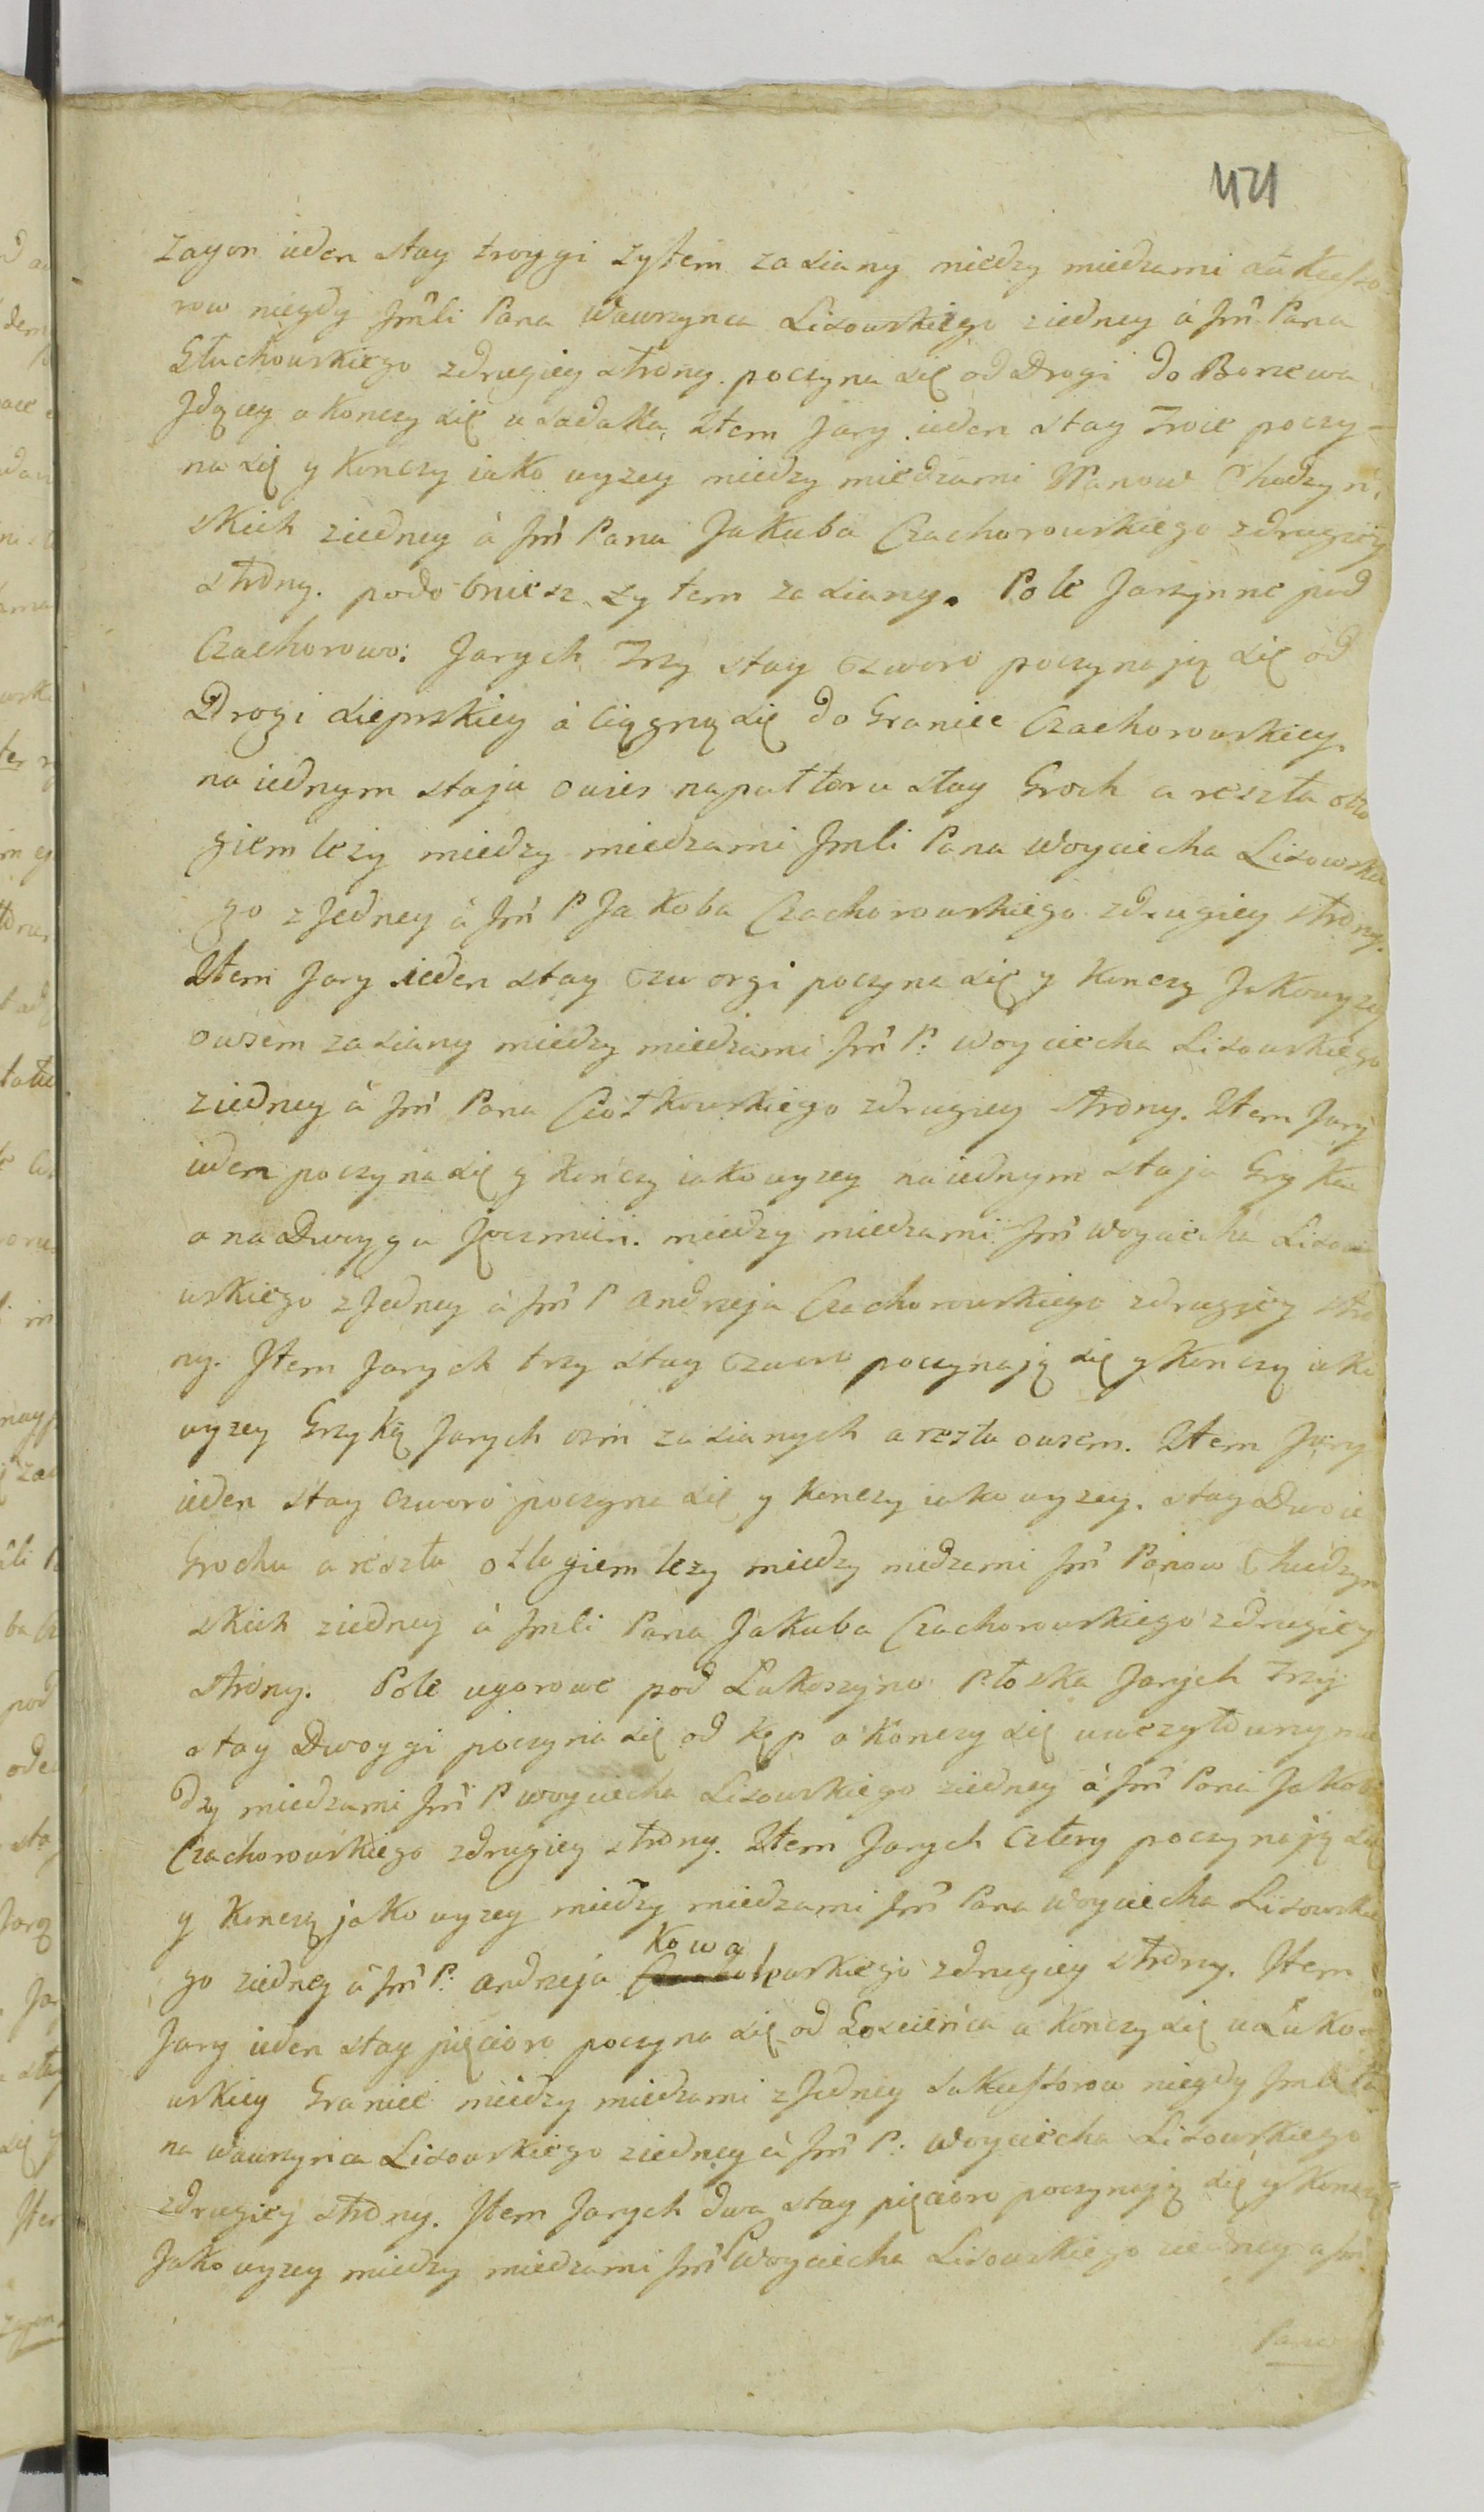 421
zagon ieden stay troygi zytem zasiany miedzy miedzami
row niegdy Jmći Pana Wawrzynca Lisowskiego ziedney á Jmć Pana
Głuchowskiego zdrugiey strony. poczyna się od Drogi do Borzewa
Jdącey a Konczy się u sadaka, Item Jary ieden stay Troie poczy-
na się y Konczy iako wyzey miedzy miedzami WPanow Chudzyń,
skich ziedney á Jmć Pana Jakuba Czachorowskiego zdrugiey
strony. podobniesz zytem zasiany. Pole Jarzynne pod
Czachorowo: Jarych Trzy stay czworo poczynają się od
Drogi sieprskiey á Ciągną się do Granice Czachorowskiey.
na iednym staju owies napułtoru stay Groch a reszta odło
giem lezy miedzy miedzami Jmći Pana Woyciecha Lisowskie
go z Jedney á Jmć P Jakoba Czachorowskiego zdrugiey strony.
Item Jary ieden stay czworgi poczyna się y Konczy Jakowyzey
owsem zasiany miedzy miedzami Jmć P: Woyciecha Lisowskiego
ziedney á Jmć Pana Ciołkowskiego zdrugiey strony. Item Jary
ieden poczyna się y Kończy iakowyzey na iednym staju Gryka
a na Dwoygu Jęczmień. miedzy miedzami Jmć Woyciecha Lisow
wskiego z Jedney á Jmć P Andrzeja Czachorowskiego zdrugiey stro
ny. Item Jarych trzy stay czworo poczynają się y Konczą iako
wyzey Gryką Jarych osm zasianych a reszta owsem. Item Jary
ieden stay czworo poczyna się y Konczy iako wyzey. stay Dwoie
Grochu a reszta odłogiem lezy miedzy miedzami Jmć Panow Chudzyn
skich ziedney á Jmći Pana Jakuba Czachorowskiego zdrugiey
strony. Pole ugorowe pod Lukoszyno Płoska Jarych Trzy
stay Dwoygi poczyna się od Kęp a Konczy się mie
dzy miedzami Jmć P Woyciecha Lisowskiego ziedney á Jmć Pana Jakoba
Czachorowskiego zdrugiey strony. Item Jarych cztery poczynają się
y Konczą jako wyzey miedzy miedzami Jmć Pana Woyciecha Lisowskie
go ziedney á Jmć P: Andrzeja Kowalewskiego zdrugiey strony. Item
Jary ieden stay pięcioro poczyna się od Goscieńca a Konczy się
wskiey Granice miedzy miedzami z Jedney sukcessorow niegdy Jmći Pa
na Wawrzynca Lisowskiego ziedney á Jmć P: Woyciecha Lisowskiego
zdrugiey strony. Item Jarych dwa stay pięcioro poczynają się y Konczą
Jako wyzey miedzy miedzami Jmć P Woyciecha Lisowskiego ziedney a Jmć